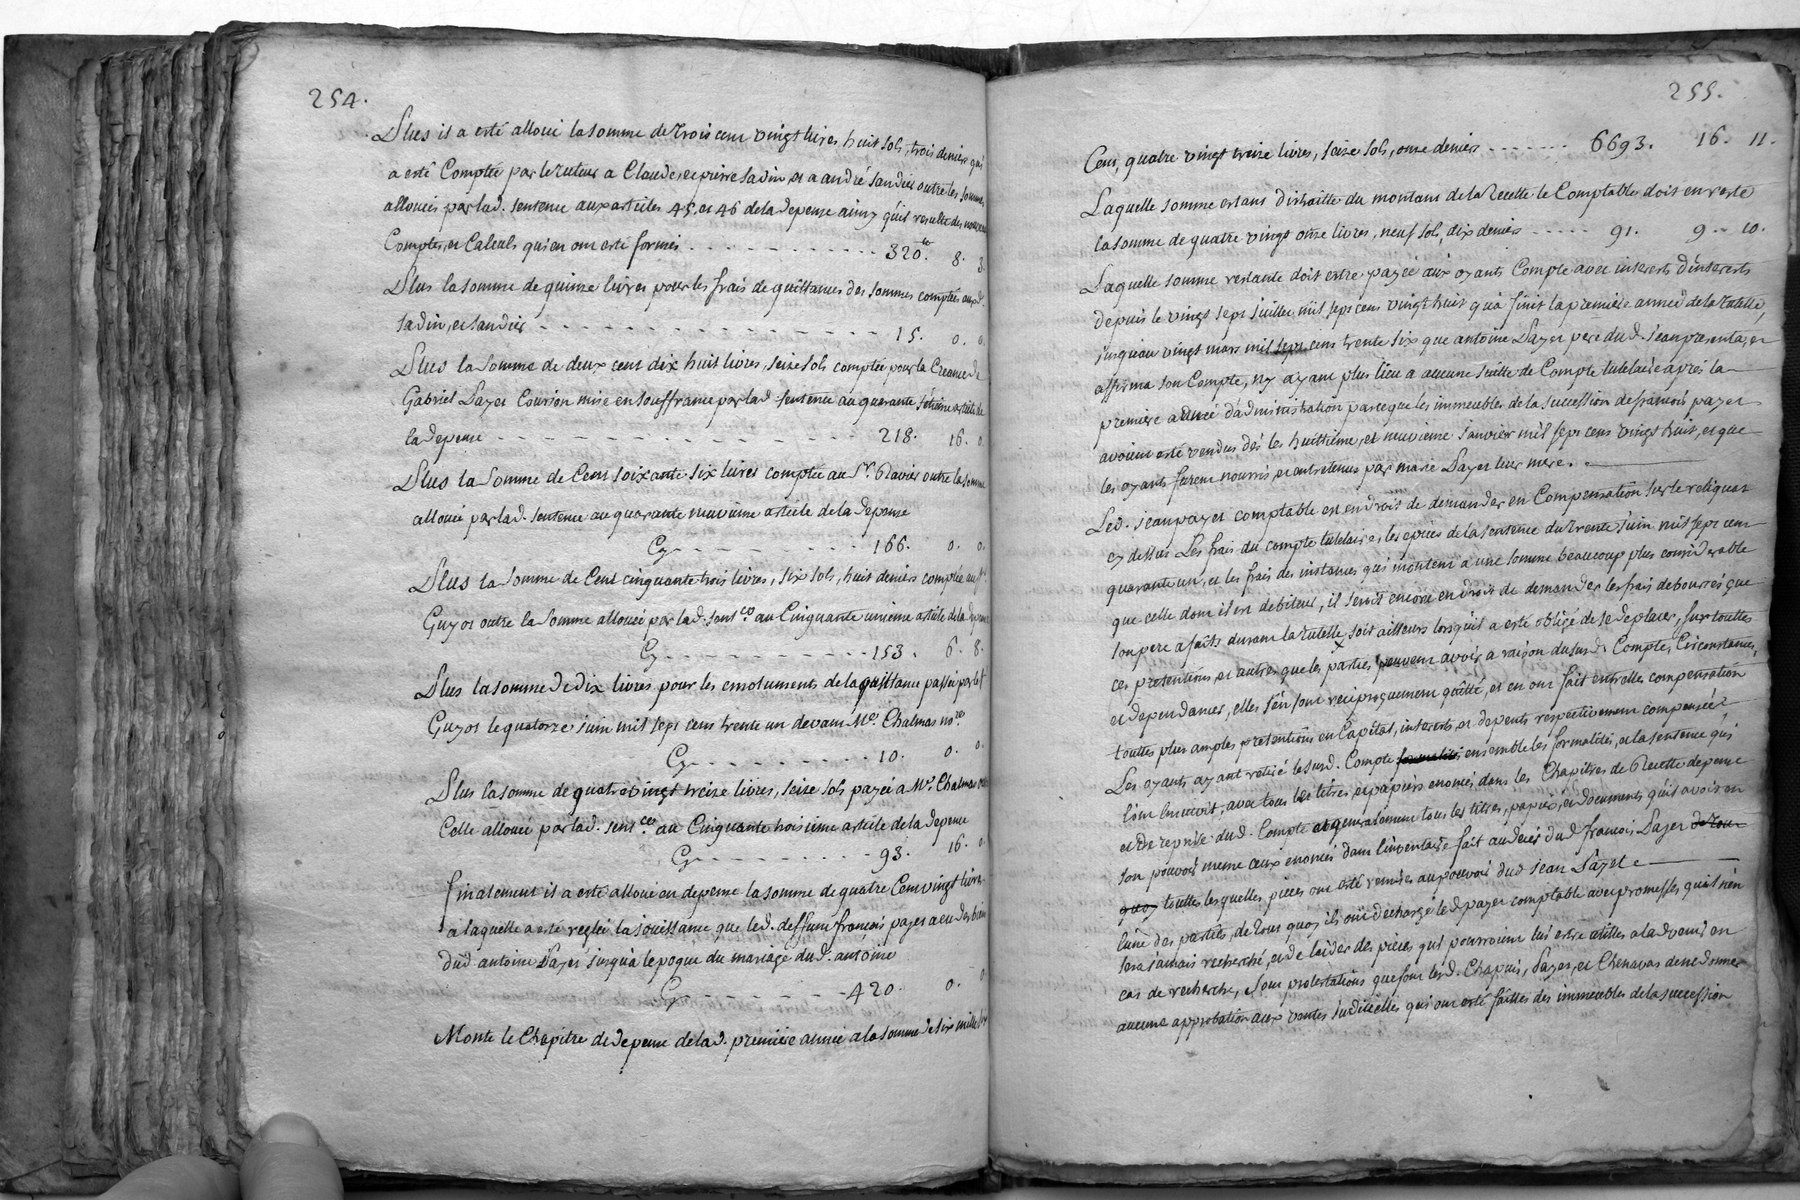 254.
Plus il a esté alloué la somme de trois cent vingt livres, huit sols, trois deniers qui
a esté Comptée par le tuteur a Claude, et pierre sadin, et a andré sandier outre les sommes
allouées par lad. sentence aux articles 45. et 46 de la depense ainsy qu'il resulte des nouveaux
Comptes, et Calculs qui en ont esté formés - - - - - - - - - - 320.tt 8. 3.
Plus la somme de quinze livres pour les frais de quittances des sommes comptées auxd.
sadin, et sandier - - - - - - - - - - - - - - 15. 0. 0.
Plus la somme de deux cent dix huit livres, seize sols comptée pour la Creance de
Gabriel Payet Courson mise en souffrance par lad. sentence au quarante septieme article de
la depense - - - - - - - - - - - - - - 218. 16. 0.
Plus la somme de Cent soixante six livres comptée au Sr. outre la somme
allouée par lad. sentence au quarante neuvieme article de la depense
Cy - - - - - - - - 166. 0. 0.
Plus la somme de Cent cinquante trois livres, six sols, huit deniers comptée au Sr.
Guyot outre la somme allouée par lad. sentce au Cinquante unieme article de la depense
Cy - - - - - - - - - 153. 6. 8.
Plus la somme de dix livres pour les emolumens de la quittance passée par led.
Guyot le quatorze juin mil sept cent trente un devant Me. Chalmas nore.
Cy - - - - - - - - 10. 0. 0.
Plus la somme de quatre vingt treize livres, seize sols payée a Me. Chalmas outre
Celle allouée par lad. sentce. au Cinquante troisieme article de la depense
Cy - - - - - - - - - 93. 16. 0.
finalement il a esté alloué en depense la somme de quatre Cent vingt livres
a laquelle a esté reglée la jouissance que led. deffunt françois payet a eu des biens
dud. antoine Payet jusqu'a l'epoque du mariage dud. antoine
Cy - - - - - - - - - 420. 0. 0
Monte le Chapitre de depense de lad. premiere année a la somme de six mille six
255.
Cent, quatre vingt treize livres, seize sols, onze deniers - - - - - - 6693. 16. 11.
Laquelle somme estant distraitte du montant de la Recette le Comptable doit en reste
la somme de quatre vingt onze livres, neuf sols, dix deniers - - - - - 91. 9. 10.
Laquelle somme restante doit estre payée aux oyants Compte avec interets d'interets
depuis le vingt sept juillet mil sept cent vingt huit qu'a finit la premiere année de la tutelle,
jusqu'au vingt mars mil sept cent trente six que antoine Payet pere dud. jean presenta, et
affirma son Compte, n'y ayant plus lieu a aucune suitte de Compte tutelaire après la
premiere année d'administration parceque les immeubles de la succession de françois payet
avoient esté vendus dés les huittieme, et neuvieme janvier mil sept cent vingt huit, et que
les oyants furent nourris, et entretenus par marie Payet leur mere.
Led. jean payet comptable est en droit de demander en Compensation sur le reliquat
cy dessus Les frais du compte tutelaire, les epices de la sentence du trente juin mil sept cent
quarante un, et les frais des instances qui montent a une somme beaucoup plus considerable
que celle dont il est debiteur, il seroit encore en droit de demander les frais deboursés que
son pere a faits durant la tutelle, soit ailleurs lorsqu'il a esté obligé de se deplacer, sur touttes
ces pretentions, et autres que les parties peuvent avoir a raison dususd. Compte, Circonstances,
et dependances, elles s'en sont reciproquement quitté, et en ont fait entr'elles compensation
touttes plus amples pretentions en Capital, interets et depents respectivement compensées.
Les oyants ayant retiré lesusd. Compte ensemble les formalités, et la sentence qui
l'ont ensuivit, avec tous les titres, et papiers enoncés dans les Chapitres de Recette depense
et de reprise dud. Compte et generalement tous les titres, papiers, et documents qu'il avoit en
son pouvoir meme ceux enoncés dans l'inventaire fait au deces dud. françois Payet de tout
quoy touttes lesquelles pieces ont esté remises au pouvoir dud. jean Payet
l'une des parties, de tout quoy ils ont dechargé led. payet comptable avec promesses qu'il n'en
sera jamais recherché, et de l'aider des pieces qui pourroient lui estre utilles a l'advenir en
cas de recherche, sous protestations que font lesd. Chapuis, Payet, et Chenavas de ne donner
aucune approbation aux ventes judicielles qui ont esté faittes des immeubles de la succession